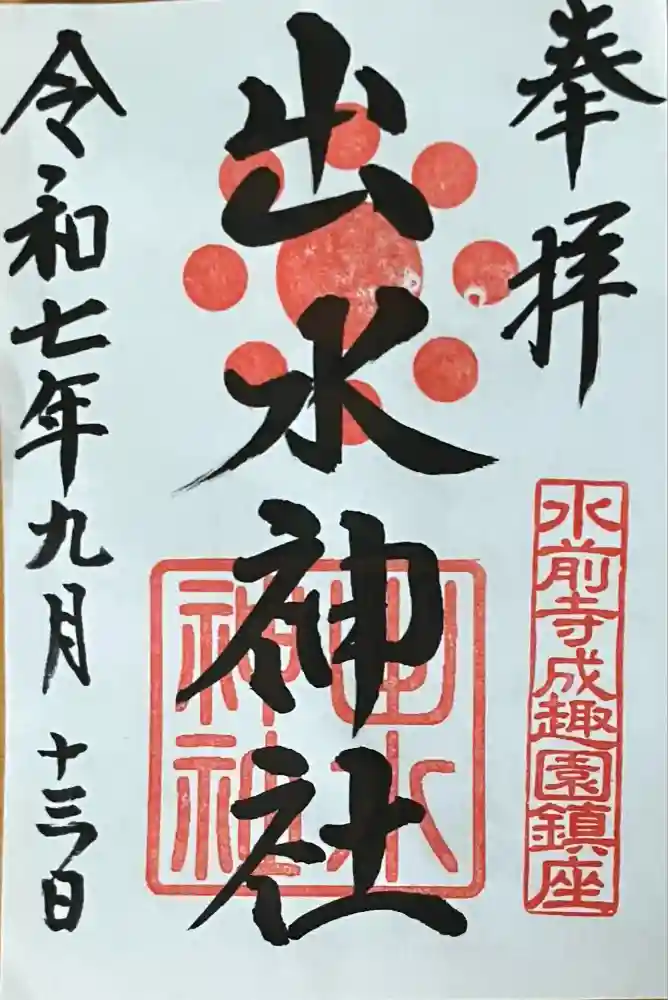 奉拝
水前寺成趣園鎮座
出水神社
令和七年九月十三日